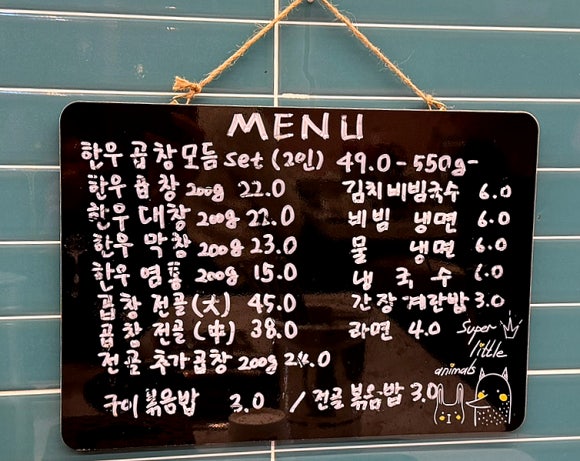 MENU
한우 곱창모듬 set (2인) 49.0-550g-
한우 곱창 200g 22.0
한우 대창 200g 22.0
한우 막창 200g 23.0
한우 염통 200g 15.0
곱창 전골 (大) 45.0
곱창 전골 (中) 38.0
전골 추가곱창 200g 24.0
김치비빔국수 6.0
비빔 냉면 6.0
물 냉면 6.0
냉국수 6.0
간장계란밥 3.0
라면 4.0
구이볶음밥 3.0 / 전골볶음밥 3.0
Super
little
animals